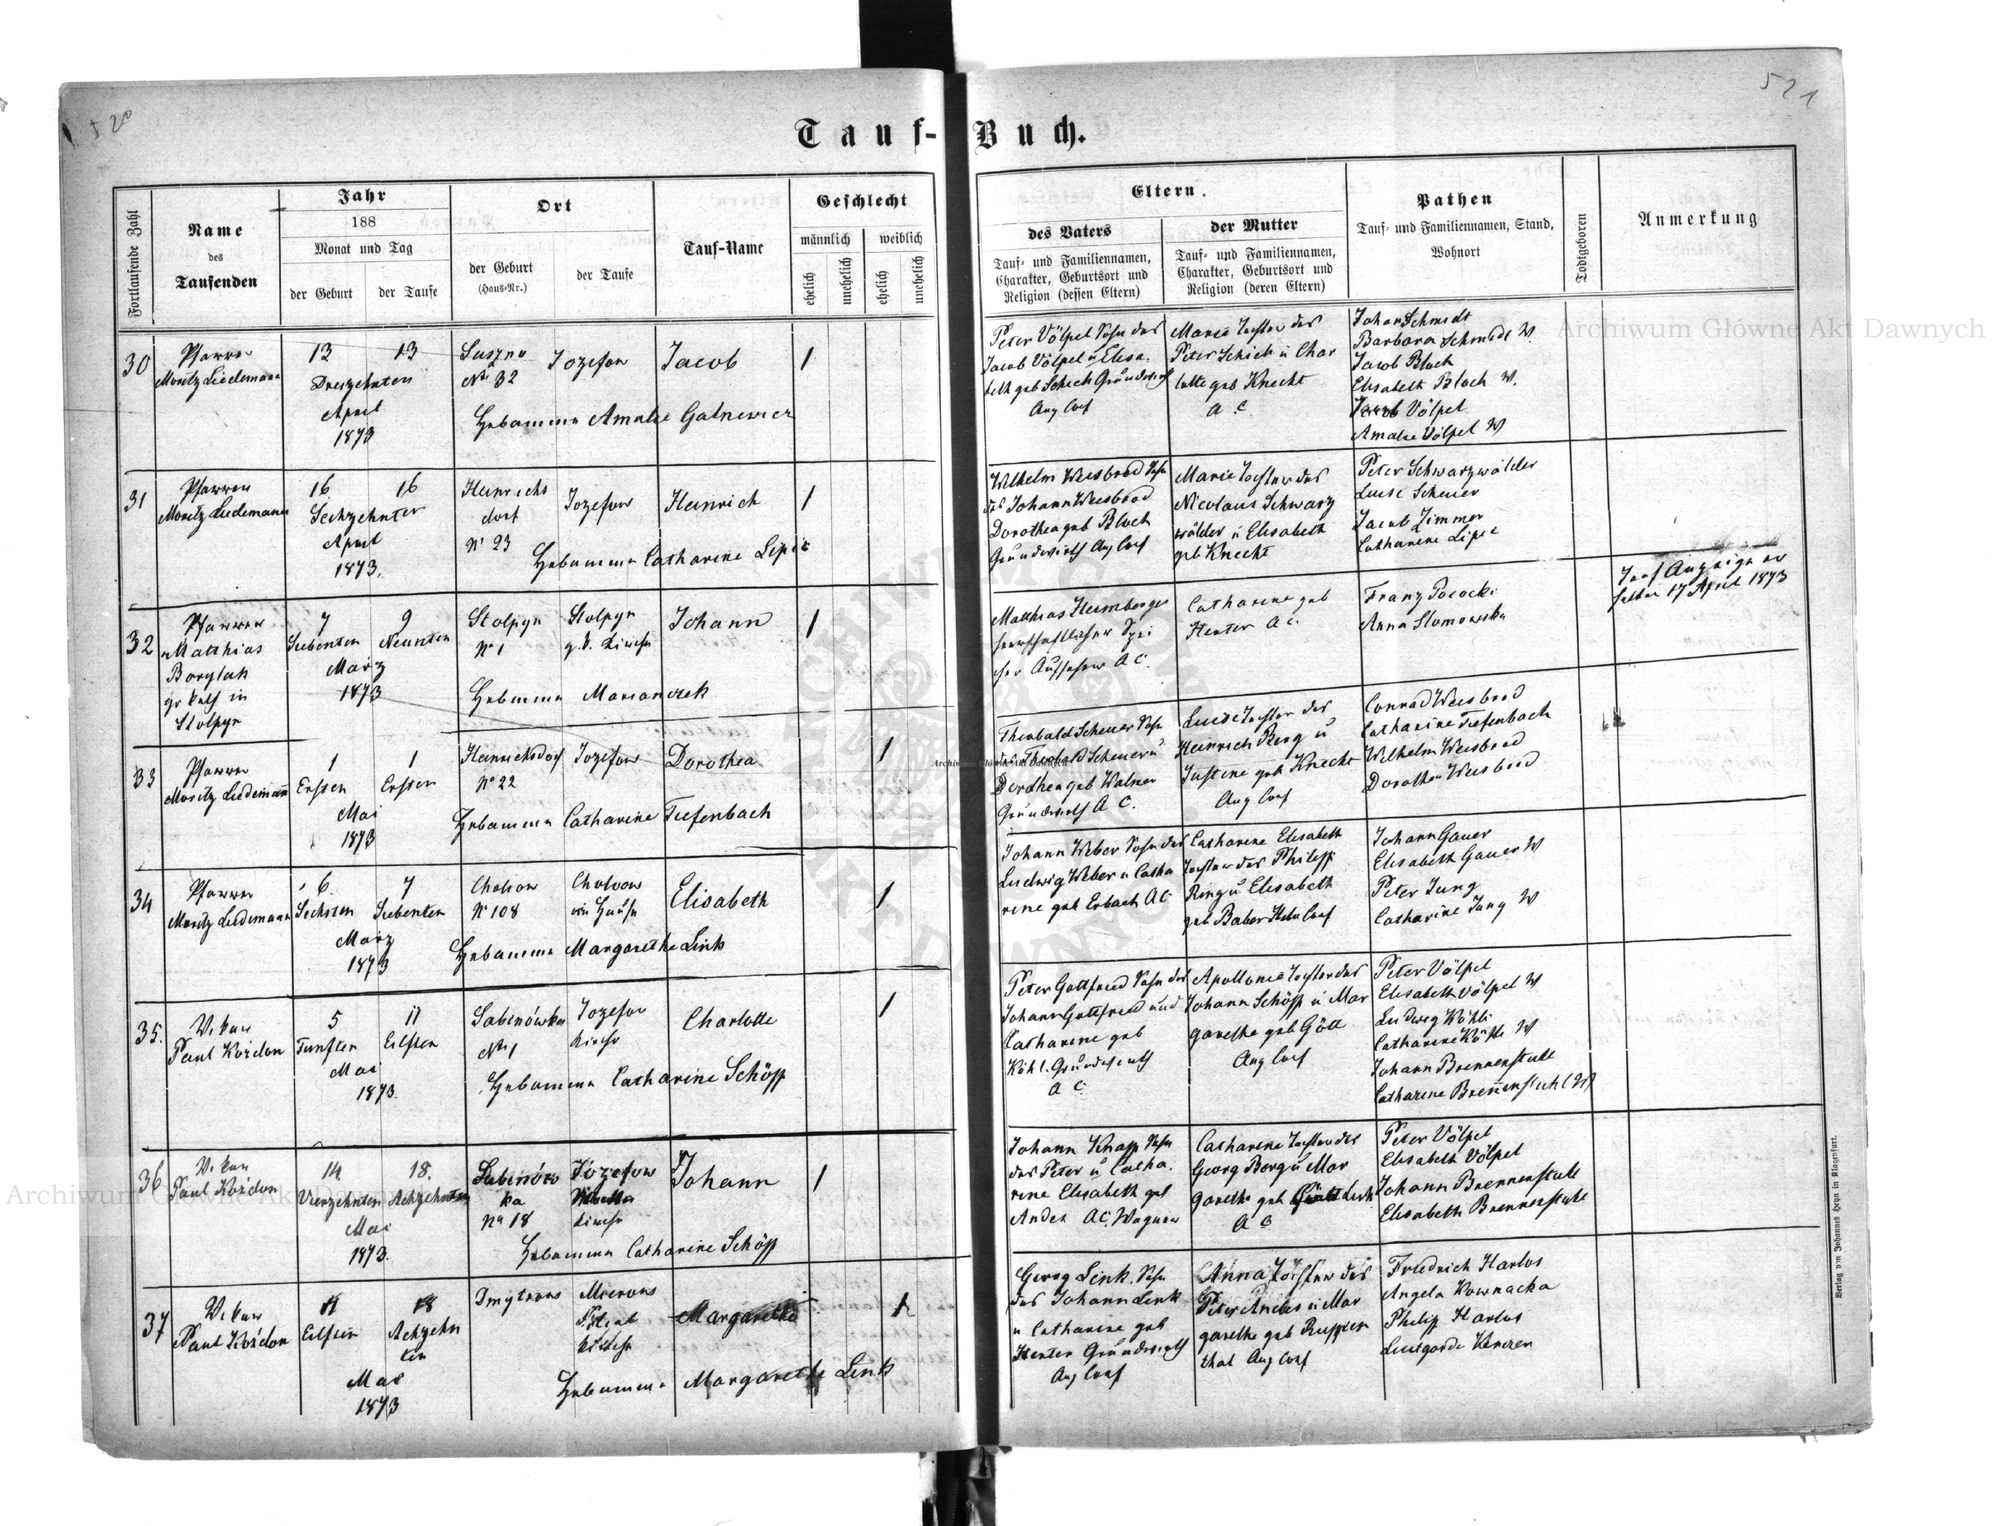 520
521
Tauf-Buch.
Fortlaufende Zahl
Name
des
Taufenden
Jahr
188
Monat und Tag
der Geburt
der Taufe
Ort
der Geburt
(Haus-Nr.)
der Taufe
Tauf-Name
Geschlecht
männlich
weiblich
ehelich
unehelich
ehelich
unehelich
Eltern.
des Vaters
Tauf- und Familiennamen,
Charakter, Geburtsort und
Religion (dessen Eltern)
der Mutter
Tauf- und Familiennamen,
Charakter, Geburtsort und
Religion (deren Eltern)
Pathen
Tauf- und Familiennamen, Stand,
Wohnort
Todtgeboren
Anmerkung
30
Pfarrer
Moritz Liedemann
13 13
Dreizehnten
April
1873
No 32
Jozefow
Jacob
1
Hebamme Amalie
Peter Völpel Sohn des
Jacob Völpel u Elisa
beth geb Schick Grundwirth
Aug Conf
Marie Tochter des
Peter Schick u Char
lotte geb Knecht
A C.
Johan Schmidt
Barbara Schmidt W
Jacob Bloch
Elisabeth Bloch W.
Jacob Völpel
Amalie Völpel W
31
Pfarrer
Moritz Liedemann
16 16
Sechzehnter
April
1873.
Heinrichs
dorf
No 23
Jozefow
Heinrich
1
Hebamme Catharine Lipie
Wilhelm Weisbrod Sohn
des Johann Weisbrod
Dorothea geb Bloch
Grundwirth Aug Conf
Marie Tochter des
Nicolaus Schwarz
wälder u Elisabeth
geb Knecht
Peter Schwarzwälder
Luise Scheuer
Jacob Zimmer
Catharine Lipie
32
Pfarrer
Matthias
gr kath in
Stolpyn
7 9
Siebenten Neunten
März
1873
Stolpyn
No 1
Stolpyn
g. k. Kirche
Johann
1
Hebamme
Matthias Heimberger
A C.
Catharine geb
Henter A C.
Franz
Anna Slomowska
17 April 1873
33
Pfarrer
Moritz Liedemann
1 1
Ersten Ersten
Mai
1873
Heinrichsdorf
No 22
Jozefow
Dorothea
1
Hebamme Catharine Tiefenbach
Theobald Scheuer Sohn
des Theobald Scheuer u
Dorothea geb
Grundwirth A C.
Luise Tochter des
Heinrich Berg u
Justine geb Knecht
Aug Conf
Conrad Weisbrod
Catharine Tiefenbach
Wilhelm Weisbrod
Dorothea Weisbrod
34
Pfarrer
Moritz Liedemann
6. 7
Sechsten Siebenten
März
1873
No 108
im Hause
Elisabeth
1
Hebamme Margarethe Link
Johann Weber Sohn des
Ludwig Weber u Catha
rine geb Erbach AC
Catharine Elisabeth
Tochter des Philipp
Ring u Elisabeth
geb
Johann Gauer
Elisabeth Gauer W
Peter Jung
Catharine Jung W
35.
Vikar
Paul Koždon
5 11
Fünften Eilften
Mai
1873.
Sabinówka
No 1
Jozefow
Kirche
Charlotte
1
Hebamme Catharine Schöpp
Peter Gottfried Sohn des
Johann Gottfried und
Catharine geb
Köhl. Grundwirth
A C.
Apollonie Tochter des
Johann Schöpp u Mar
garethe geb Gött
Aug Conf
Peter Völpel
Elisabeth Völpel W
Ludwig
Catharine
Johann Brennenstuhl
Catharine Brennenstuhl (W)
36
Vikar
Paul Koždon
14 18.
Vierzehnten Achzehnten
Mai
1873.
Sabinów
ka
No 18
Józefow
Kirche
Johann
1
Hebamme Catharine Schöpp
Johann Knapp Sohn
des Peter u Catha.
rine Elisabeth geb
Andes AC. Wagner
Catharine Tochter des
Georg Berg u Mar
garethe geb Link
A C
Peter Völpel
Elisabeth Völpel
Johann Brennenstuhl
Elisabeth Brennenstuhl
37
Vikar
Paul Koždon
11 18
Eilften Achzehn
ten
Mai
1873
Margarethe
1
Hebamme Margarethe Link
Georg Link Sohn
des Johann Link
u Catharine geb
Henter Grundwirth
Aug Conf
Anna Tochter des
Peter Andes u Mar
garethe geb Ruppen
thal Aug Conf
Friedrich Harlos
Angela Kownacka
Philip Harlos
Luitgarde
Verlag von Johannes Heyn in Klagenfurt.
Archiwum Główne Akt Dawnych
Archiwum Główne Akt Dawnych